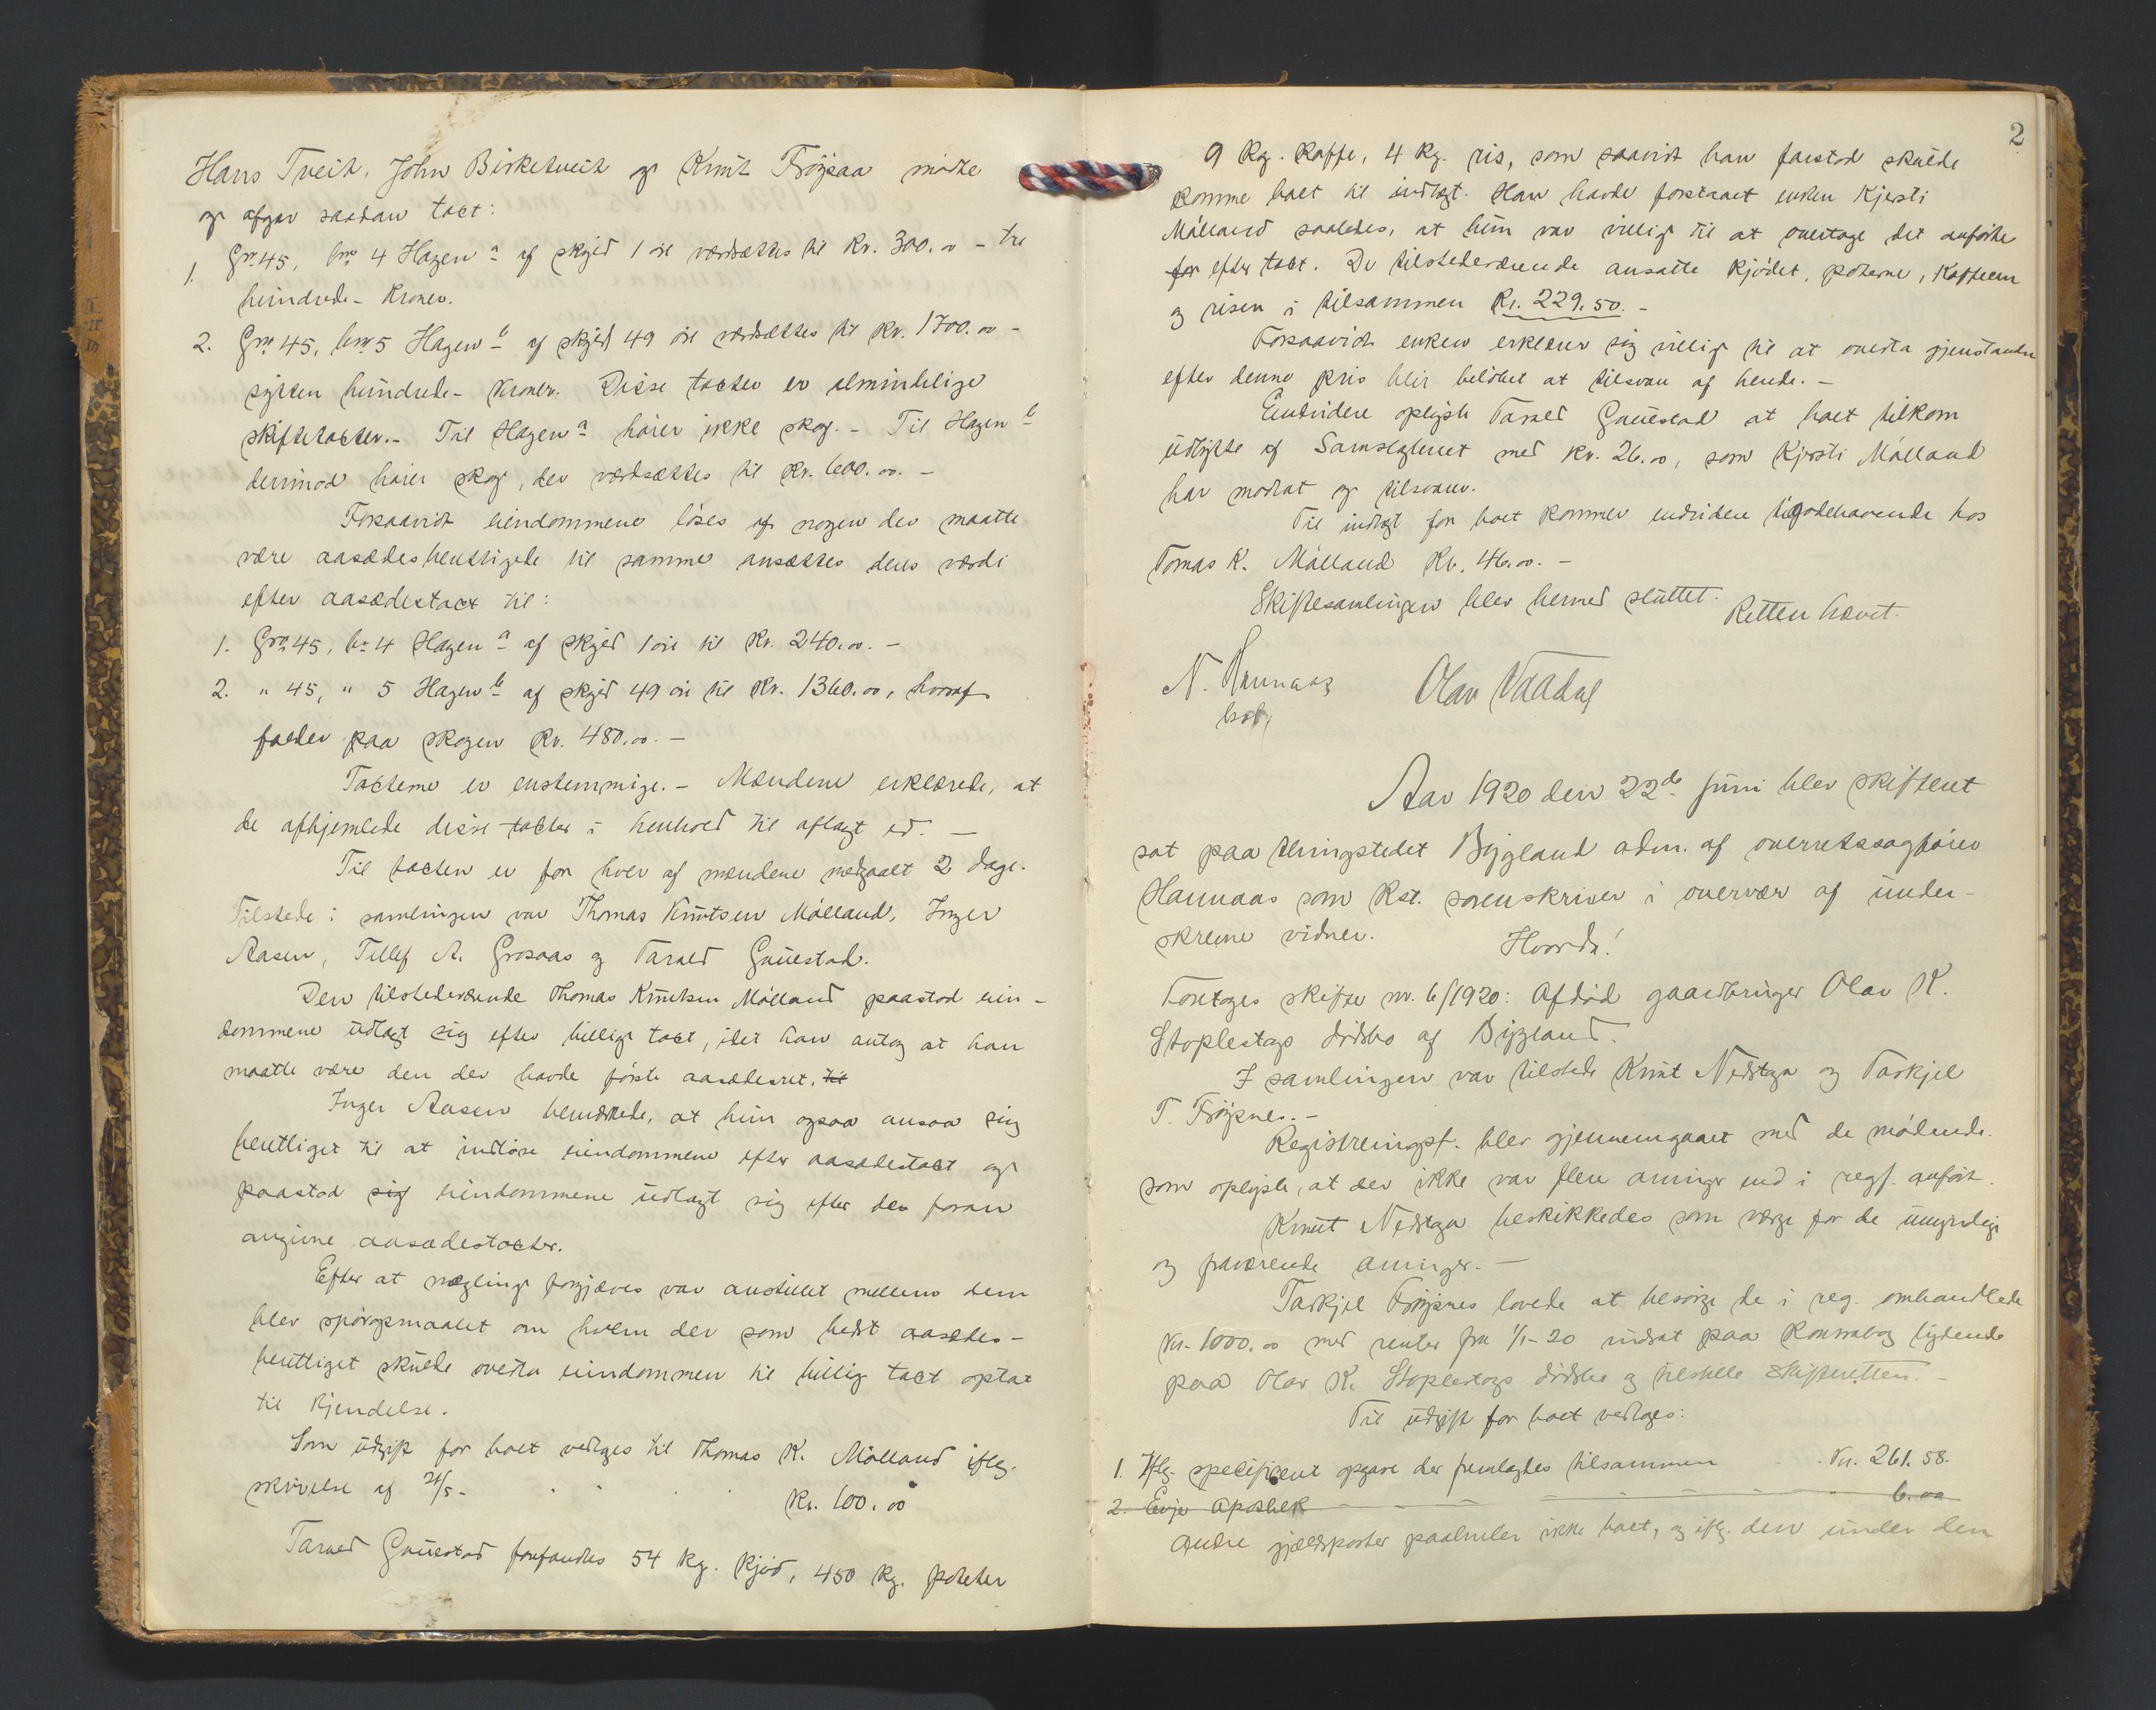 Hans Tveit, John Birketveit og Knut Frøysaa mødte
og afgav saadan taxt:
1. Gno 45, bno 4 Hagen a af skyld 1 øre værdsættes til Kr. 300.00 - tre
hundrede - Kroner.
2. Gno 45, bno 5 Hagen b af skyld 49 øre værdsættes til Kr. 1700.00 -
sytten hundrede - Kroner. Disse taxter er almindelige
skiftetaxter. - Til Hagen a hører ikke skog. - Til Hagen b
derimod hører skog, der værdsættes til Kr. 600.00. -
Forsaavidt eiendommene løses af nogen der maatte
være aasædesberettigede til samme ansættes dens værdi
efter aasædestaxt til:
1. Gno 45, bno 4 Hagen a af skyld 1 øre til Kr. 240.00. -
2. " 45, " 5 Hagen b af skyld 49 øre til Kr. 1360.00, hvoraf
falder paa skogen Kr. 480.00. -
Taxterne er enstemmige. - Mændene erklærede, at
de afhjemlede disse taxter i henhold til aflagt ed. -
Til taxten er for hver af mændene medgaaet 2 dage.
Tilstede i samlingen var Thomas Knutsen Målland, Inger
Aasen, Tellef A. Grosaas og Tarald Gauestad.
Den tilstedeværende Thomas Knutsen Målland paastod eien-
dommene udlagt sig efter billig taxt, idet han antog at han
maatte være den der havde første aasædesret. til
Inger Aasen bemærkede, at hun ogsaa ansaa sig
berettiget til at indløse eiendommene efter aasædestaxt og
paastod sig eiendommene udlagt sig efter den foran
angivne aasædestaxter.
Efter at mægling forgjæves var anstillet mellem dem
blev spørgsmaalet om hvem der som bedst aasædes-
berettiget skulde overta eiendommen til billig taxt optat
til Kjendelse.
Som udgift for boet vedtoges til Thomas K. Målland iflg.
skrivelse af 21/5- . . . . Kr. 100.00
Tarald Gauestad forefandtes 54 kg. Kjød, 450 kg. poteter
2
9 Kg. Kaffe, 4 Kg. ris, som saavidt han forstod skulde
komme boet til indtægt. Han havde forstaaet enken Kjersti
Målland saaledes, at hun var villig til at overtage det anførte
for efter taxt. De tilstedeværende ansatte Kjødet, poterne, Kaffeen
og risen i tilsammen Kr. 229.50. -
Forsaavidt enken erklærer sig villig til at overta gjenstandene
efter denne pris blir beløbet at tilsvare af hende. -
Endvidere oplyste Tarald Gauestad at boet tilkom
udbytte af Samslagteriet med Kr. 26.00, som Kjersti Målland
har modtat og tilsvarer.
Til indtægt for boet kommer endvidere tilgodehavende hos
Tomas K. Målland Kr. 46.00. -
Skiftesamlingen blev hermed sluttet.
Retten hævet.
N. Hannaas
Olav Vaadal
Aar 1920 den 22de Juni blev skifteret
sat paa thingstedet Bygland adm. af overretssagfører
Hannaas som Kst. sorenskriver i overvær af under-
skrevne vidner. Hvorda!
Foretoges skifte nr. 6/1920: Afdød gaardbruger Olav K.
Stoplestags dødsbo af Bygland.
I samlingen var tilstede Knut Nedstga og Taskjel
T. Frøysnes. -
Registreringsf. blev gjennemgaaet med de mødende.
som oplyste, at der ikke var flere arvinger end i regf. anført.
Knut Nedstga beskikkedes som værge for de umyndige
og fraværende arvinger. -
Taskjel Frøysnes lovede at besørge de i reg. omhandlede
Kr. 1000.00 med renter fra 1/1-20 indsat paa Kontrabog lydende
paa Olav K. Stoplestags dødsbo og tilstille skifteretten. -
Til udgift for boet vedtoges:
1. Iflg. specificeret opgave der fremlagdes tilsammen . . Kr. 261.58.
2. Evje Apothek - - - - - " 6.00
Andre gjældsposter paahviler ikke boet, og iflg. den under den